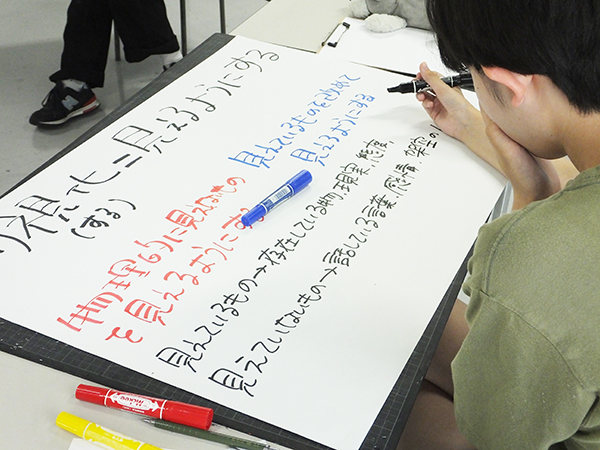 可視化=見えるようにする
(する)
物理的に見えないもの
を見えるようにする
見えているものを改めて
見えるようにする
見えているもの→存在している物、現実、態度
見えていないもの→話している言葉、感情、架空の